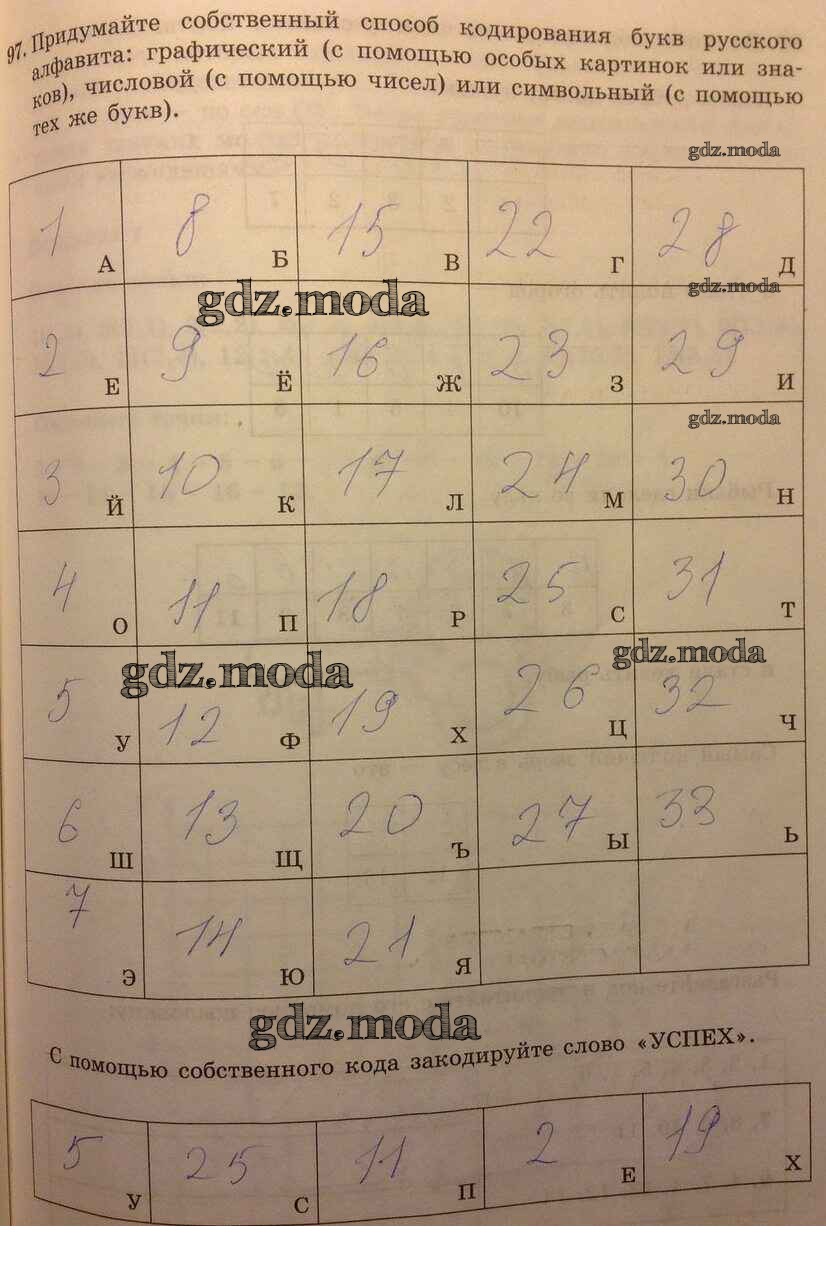 97. Придумайте собственный способ кодирования букв русского
алфавита: графический (с помощью особых картинок или зна-
ков), числовой (с помощью чисел) или символьный (с помощью
тех же букв).
gdz.moda
1 А 8 Б 15 В 22 Г 28 Д
gdz.moda gdz.moda
2 Е 9 Ё 16 Ж 23 З 29 И
gdz.moda
3 Й 10 К 17 Л 24 М 30 Н
4 О 11 П 18 Р 25 С 31 Т
gdz.moda gdz.moda
5 У 12 Ф 19 Х 26 Ц 32 Ч
6 Ш 13 Щ 20 Ъ 27 Ы 33 Ь
7 Э 14 Ю 21 Я
gdz.moda
С помощью собственного кода закодируйте слово «УСПЕХ».
5 У 25 С 11 П 2 Е 19 Х